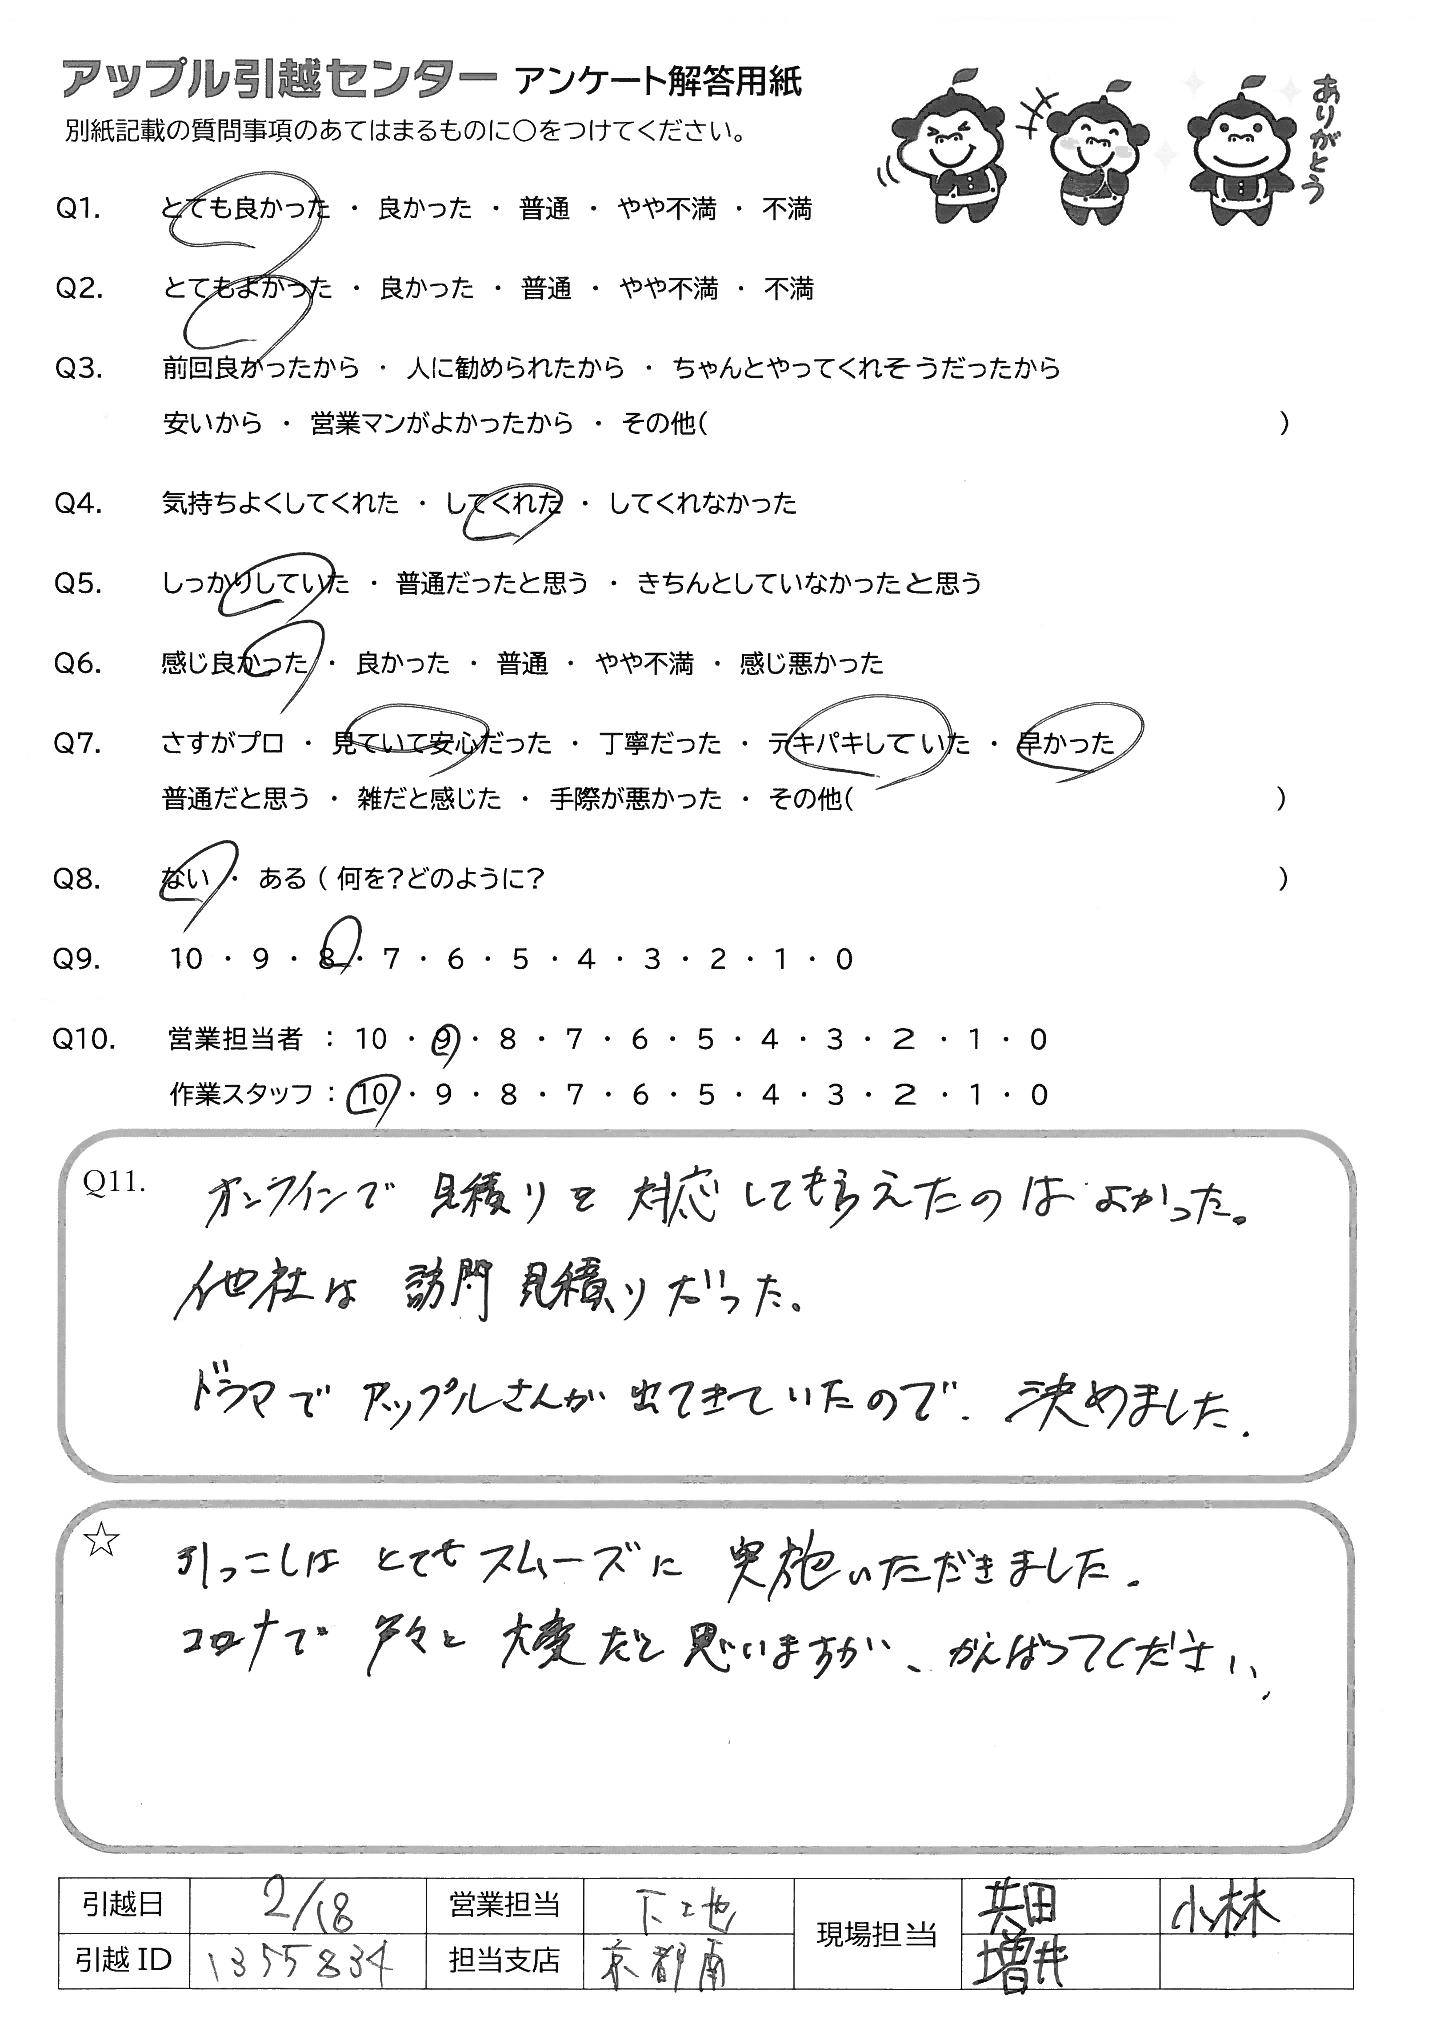 アップル引越センター アンケート解答用紙
別紙記載の質問事項のあてはまるものに○をつけてください。
ありがとう
Q1. とても良かった ・ 良かった ・ 普通 ・ やや不満 ・ 不満
Q2. とてもよかった ・ 良かった ・ 普通 ・ やや不満 ・ 不満
Q3. 前回良かったから ・ 人に勧められたから ・ ちゃんとやってくれそうだったから
安いから ・ 営業マンがよかったから ・ その他( )
Q4. 気持ちよくしてくれた ・ してくれた ・ してくれなかった
Q5. しっかりしていた ・ 普通だったと思う ・ きちんとしていなかったと思う
Q6. 感じ良かった ・ 良かった ・ 普通 ・ やや不満 ・ 感じ悪かった
Q7. さすがプロ ・ 見ていて安心だった ・ 丁寧だった ・ テキパキしていた ・ 早かった
普通だと思う ・ 雑だと感じた ・ 手際が悪かった ・ その他( )
Q8. ない ・ ある ( 何を?どのように? )
Q9. 10 ・ 9 ・ 8 ・ 7 ・ 6 ・ 5 ・ 4 ・ 3 ・ 2 ・ 1 ・ 0
Q10. 営業担当者 : 10 ・ 9 ・ 8 ・ 7 ・ 6 ・ 5 ・ 4 ・ 3 ・ 2 ・ 1 ・ 0
作業スタッフ : 10 ・ 9 ・ 8 ・ 7 ・ 6 ・ 5 ・ 4 ・ 3 ・ 2 ・ 1 ・ 0
Q11. オンラインで見積りを対応してもらえたのはよかった。
他社は訪問見積りだった。
ドラマでアップルさんが出てきていたので、決めました.
☆ 引っこしはとてもスムーズに実施いただきました.
コロナで 々と大変だと思いますが、がんばってください.
引越日 2/18 営業担当 下地 現場担当 共田 小林
引越ID 1355834 担当支店 京都南 増井